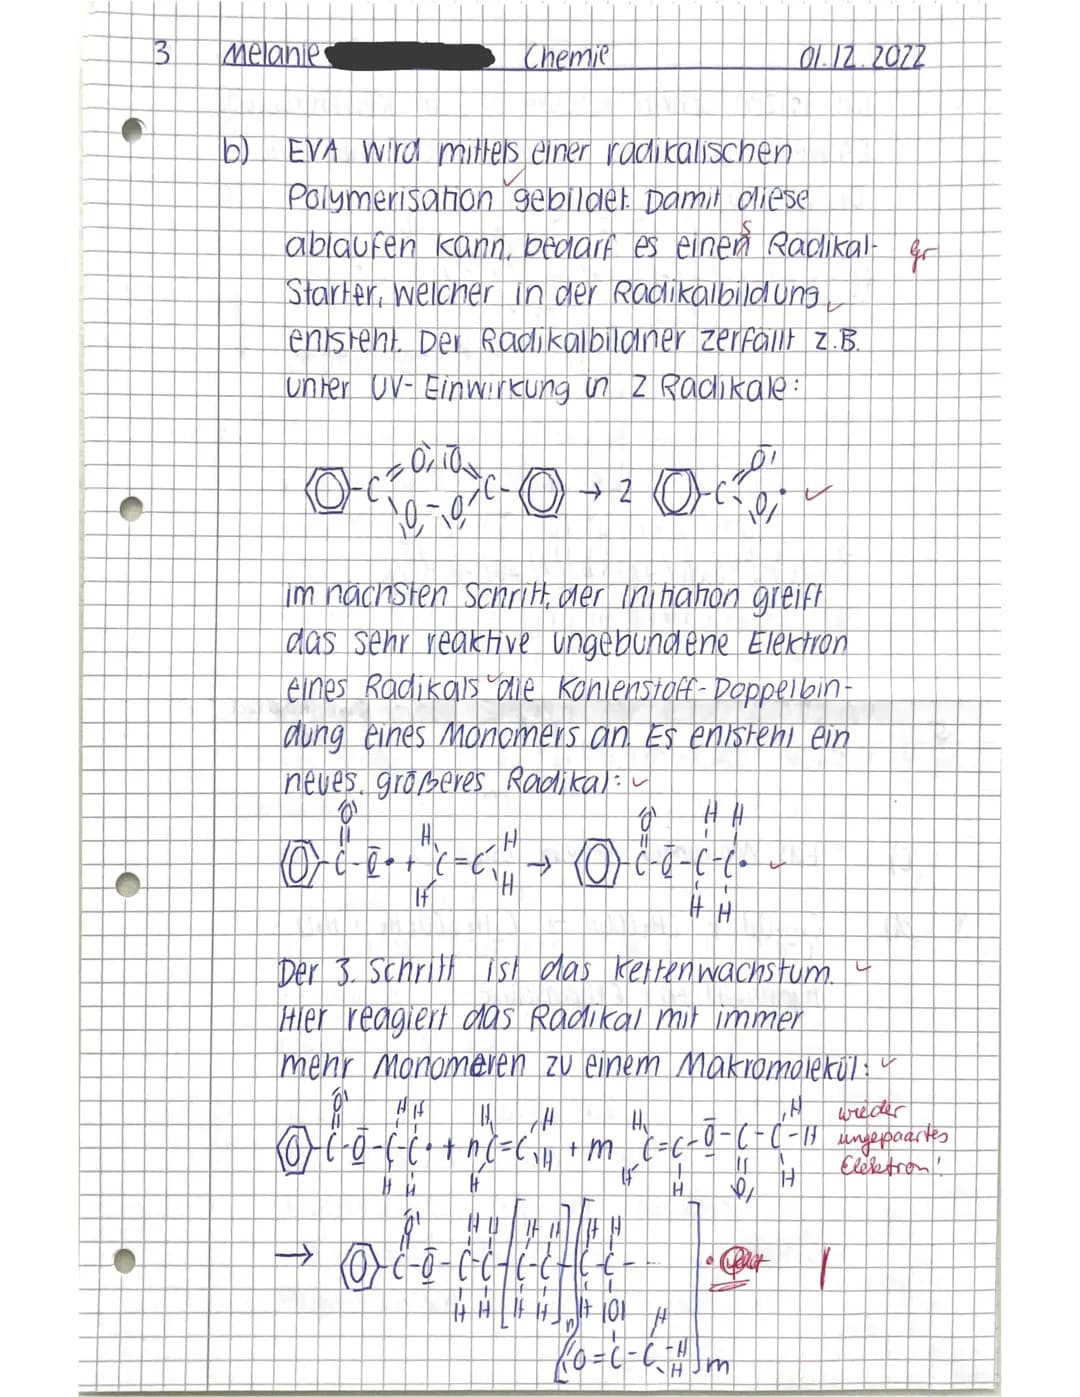 3 Melanie Chemie 01.12.2022
b) EVA wird mittels einer radikalischen
Polymerisation gebildet. Damit diese
ablaufen kann, bedarf es einen Radikal- gr
s
Starter, welcher in der Radikalbildung
entsteht. Der Radikalbildner zerfällt z.B.
unter UV-Einwirkung in 2 Radikale:
→ 2
im nächsten Schritt, der Initiation greift
das sehr reaktive ungebundene Elektron
eines Radikals die Kohlenstoff-Doppelbin-
dung eines Monomers an. Es entsteht ein
neues, größeres Radikal:
Der 3. Schritt ist das Kettenwachstum.
Hier reagiert das Radikal mit immer
mehr Monomeren zu einem Makromolekül:
wieder
ungepaartes
Elektron!